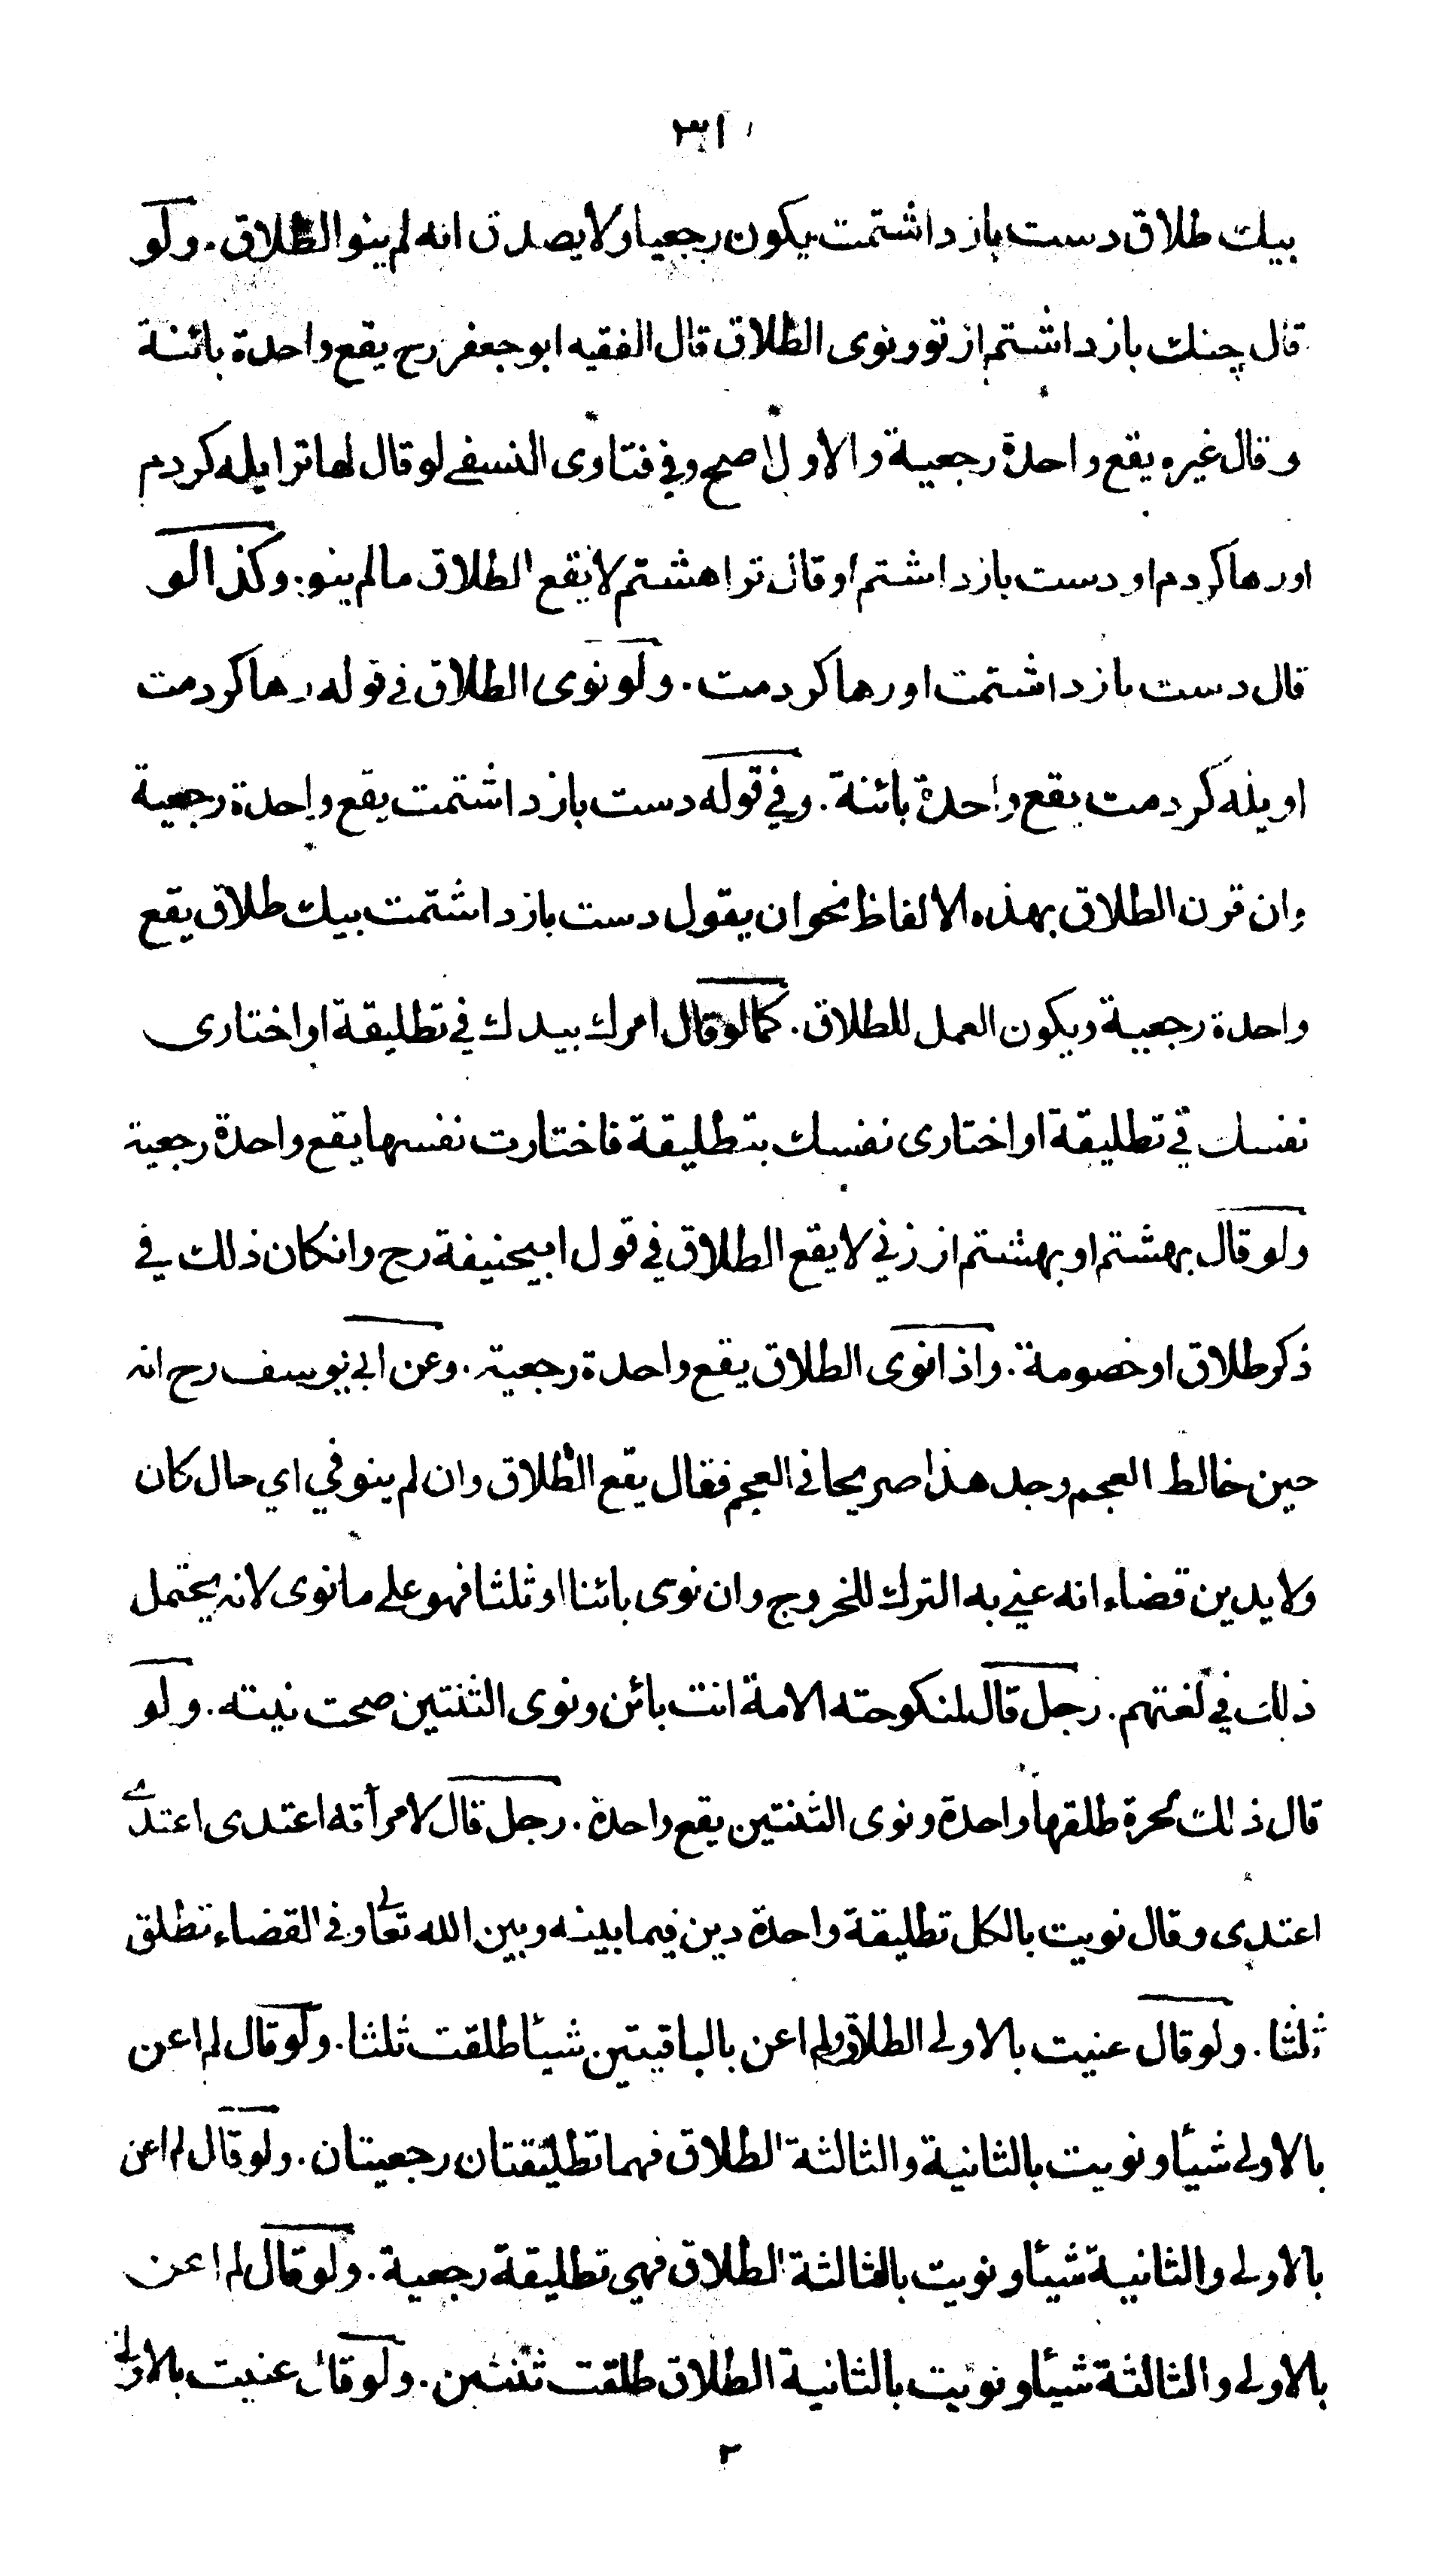 ٣١
بيك طلاق دست بازداشتمت يكون رجعيا ولا يصدق انه لم ينو الطلاق . ولو
قال چنك بازداشتم از تو ونوى الطلاق قال الفقيه ابو جعفر رح يقع واحدة بائنة
وقال غيره يقع واحدة رجعية والاول اصح وفي فتاوى النسفي لو قال لها ترا يله كردم
اورها كردم او دست بازداشتم او قال ترا هشتم لا يقع الطلاق مالم ينو . وكذا لو
قال دست بازداشتمت اورها كردمت . ولو نوى الطلاق في قوله رها كردمت
او يله كردمت يقع واحدة بائنة . وفي قوله دست بازداشتمت يقع واحدة رجعية
وان قرن الطلاق بهذه الالفاظ نحو ان يقول دست بازداشتمت بيك طلاق يقع
واحدة رجعية ويكون العمل للطلاق . كما لو قال امرك بيدك في تطليقة او اختارى
نفسك في تطليقة او اختارى نفسك بتطليقة فاختارت نفسها يقع واحدة رجعية
ولو قال بهشتم او بهشتم از زني لا يقع الطلاق في قول ابيحنيفة رح وانكان ذلك في
ذكر طلاق او خصومة . واذا نوى الطلاق يقع واحدة رجعية . وعن ابي يوسف رح انه
حين خالط العجم وجد هذا صريحا في العجم فقال يقع الطلاق وان لم ينو في اي حال كان
ولا يدين قضاء انه عني به الترك للخروج وان نوى بائنا او ثلثا فهو على ما نوى لانه يحتمل
ذلك في لغتهم . رجل قال لمنكوحته الامة انت بائن ونوى الثنتين صحت نيته . ولو
قال ذلك لحرة طلقها واحدة ونوى الثنتين يقع واحدة . رجل قال لامرأته اعتدى اعتدي
اعتدى وقال نويت بالكل تطليقة واحدة دين فيما بينه وبين الله تعالى وفي القضاء تطلق
ثلثا . ولو قال عنيت بالاولى الطلاق ولم اعن بالباقيتين شيئا طلقت ثلثا . ولو قال لم اعن
بالاولى شيئا ونويت بالثانية والثالثة الطلاق فهما تطليقتان رجعيتان . ولو قال لم اعن
بالاولى والثانية شيئا ونويت بالثالثة الطلاق فهي تطليقة رجعية . ولو قال لم اعن
بالاولى والثالثة شيئا ونويت بالثانية الطلاق طلقت ثنتين . ولو قال عنيت بالاولى
٢